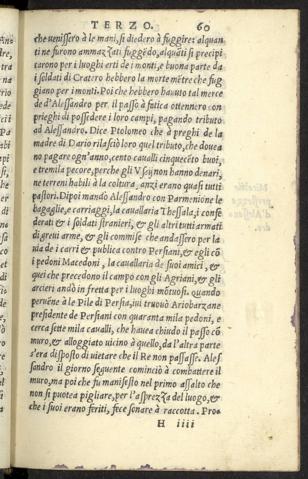 TERZO. 60
che venissero à le mani, si diedero à fuggire: alquan
ti ne furono ammazzati fuggēdo, alquāti si precipi
tarono per i luoghi erti de i monti, e buona parte da
i soldati di Cratero hebbero la morte mētre che fug
giano per i monti. Poi che hebbero havuto tal merce
de d'Alessandro per il passo à fatica ottennero con
prieghi di possedere i loro campi, pagando tributo
ad Alessandro. Dice Ptolomeo che à preghi de la
madre di Dario rilasciò loro quel tributo, che douea
no pagare ogn'anno, cento caualli cinquecēto buoi,
e tremila pecore, perche gli Vxij non hanno denari,
ne terreni habili à la coltura, anzi erano quasi tutti
pastori. Dipoi mando Alessandro con Parmenione le
bagaglie, e carriaggi, la cauallaria Thessala, i confe
derati & i soldati stranieri, & gli altri tutti armati
di greui arme, & gli commise che andassero per la
uia de i carri & publica contro Persiani, & egli cō
i pedoni Macedoni, la cauallaria de suoi amici, &
quei che precedono il campo con gli Agriani, & gli
arcieri andò in fretta per i luoghi mōtuosi. quando
peruēne à le Pile di Persia, iui trouò Ariobarzane
presidente de Persiani con quaranta mila pedoni, e
cerca sette mila caualli, che hauea chiudo il passo cō
muro, & alloggiato uicino à quello, da l'altra parte
s'era disposto di uietare che il Re non passasse. Ales
sandro il giorno seguente cominciò à combattere il
muro, ma poi che fu manifesto nel primo assalto che
non si puotea pigliare, per l'asprezza del luogo, &
che i suoi erano feriti, fece sonare à raccotta. Pro-
H iiii